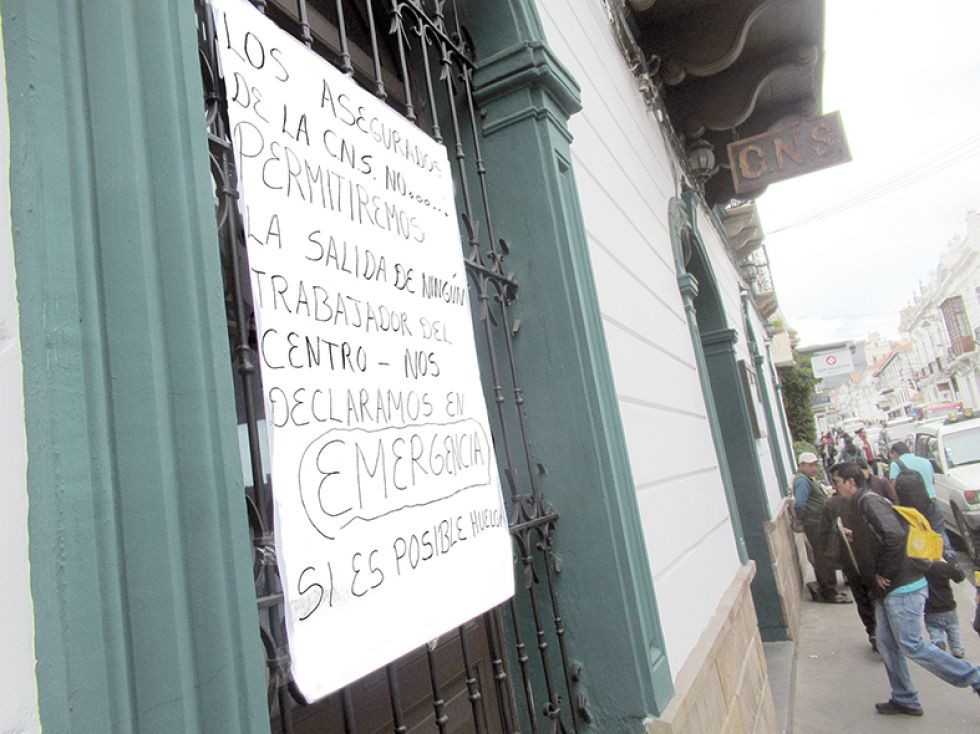 LOS ASEGURADOS
DE LA C.N.S. NO.......
PERMITIREMOS
LA SALIDA DE NINGÚN
TRABAJADOR DEL
CENTRO - NOS
DECLARAMOS EN
EMERGENCIA
SI ES POSIBLE HUELGA
C.N.S.